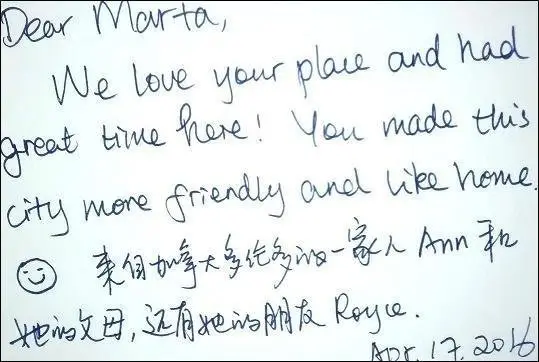 Dear Marta,
We love your place and had
great time here! You made this
city more friendly and like home.
来自加拿大多伦多的一家人 Ann 和
她的父母,还有她的朋友 Royce.
Apr. 17. 2016